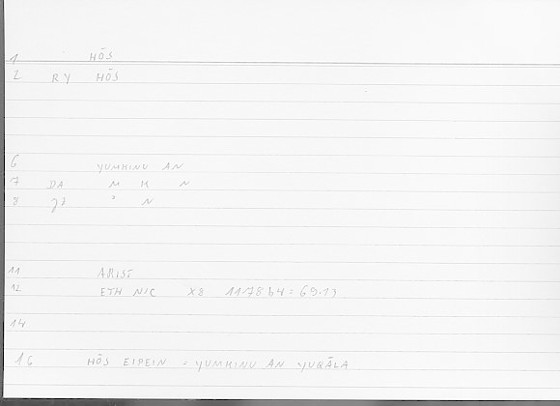 1 HŌS
2 RY HŌS
6 YUMKINU AN
7 DA M K N
8 N
11 ARIST
12 ETH NIC 1178b4 = 69.13
14
16 HŌS EIPEIN = YUMKINU AN YUQĀLA